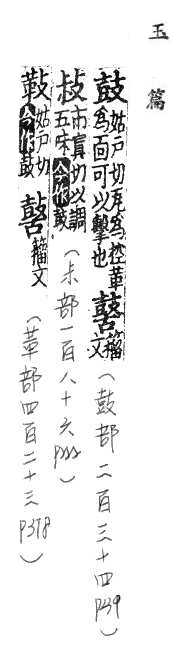 玉篇
鼓 姑戶切瓦為椌革為面可以擊也 𪔐 籀文 (鼓部二百三十四 P39)
敊 市寘切以調五味今作豉 (尗部一百八十六 P222)
姑戶切今作鼓 𪔐 籀文 (革部四百二十三 P378)